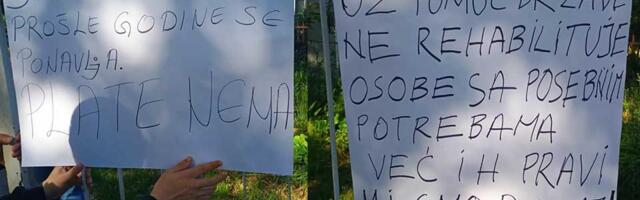 PROŠLE GODINE SE
PONAVLJA.
PLATE NEMA
UZ POMOĆ DRŽAVE
NE REHABILITUJE
OSOBE SA POSEBNIM
POTREBAMA
VEĆ IH PRAVI